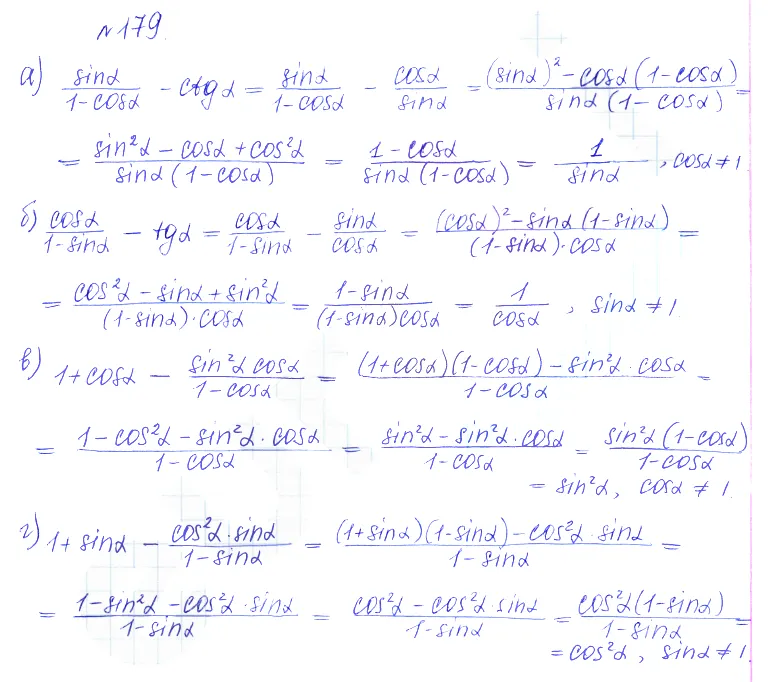 №179
а) sinα/(1-cosα) - ctgα = sinα/(1-cosα) - cosα/sinα = ((sinα)² - cosα(1-cosα))/(sinα(1-cosα)) =
= (sin²α - cosα + cos²α)/(sinα(1-cosα)) = (1-cosα)/(sinα(1-cosα)) = 1/sinα, cosα ≠ 1
б) cosα/(1-sinα) - tgα = cosα/(1-sinα) - sinα/cosα = ((cosα)² - sinα(1-sinα))/((1-sinα)·cosα) =
= (cos²α - sinα + sin²α)/((1-sinα)·cosα) = (1-sinα)/((1-sinα)cosα) = 1/cosα, sinα ≠ 1
в) 1+cosα - (sin²α cosα)/(1-cosα) = ((1+cosα)(1-cosα) - sin²α·cosα)/(1-cosα) =
= (1-cos²α - sin²α·cosα)/(1-cosα) = (sin²α - sin²α·cosα)/(1-cosα) = (sin²α(1-cosα))/(1-cosα)
= sin²α, cosα ≠ 1.
г) 1+sinα - (cos²α·sinα)/(1-sinα) = ((1+sinα)(1-sinα) - cos²α·sinα)/(1-sinα) =
= (1-sin²α - cos²α·sinα)/(1-sinα) = (cos²α - cos²α·sinα)/(1-sinα) = (cos²α(1-sinα))/(1-sinα) =
= cos²α, sinα ≠ 1.